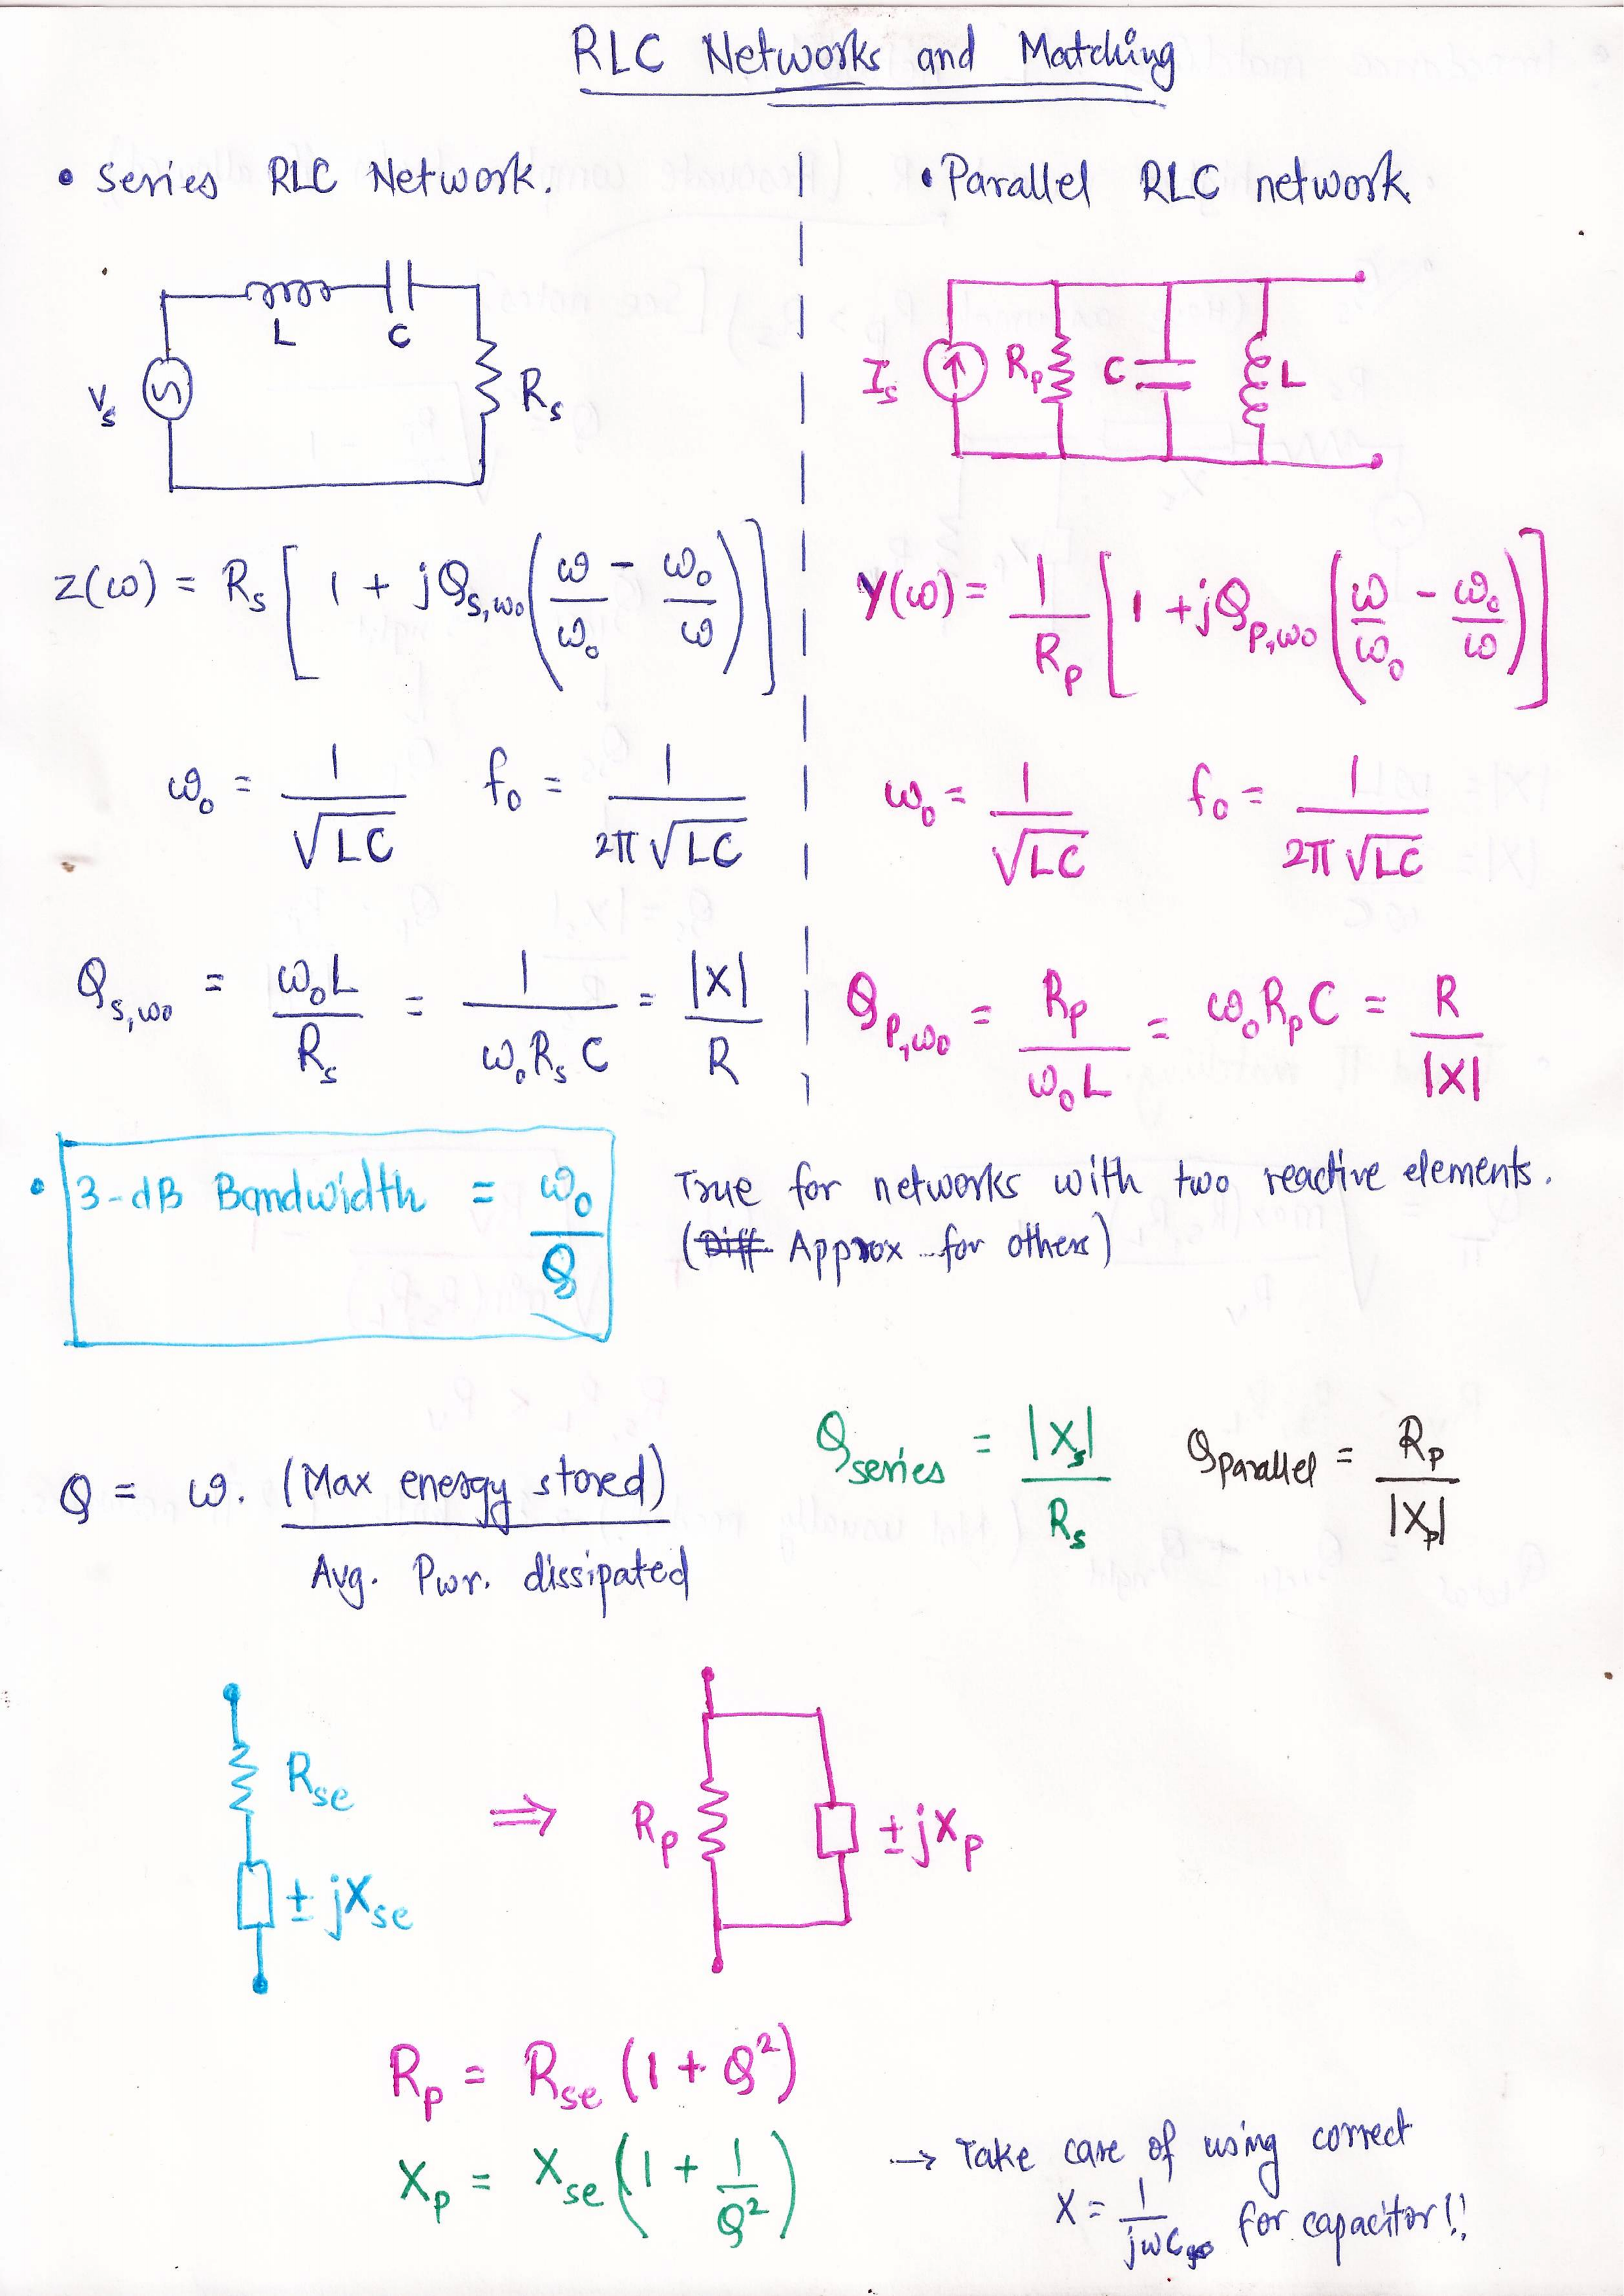 RLC Networks and Matching
• Series RLC Network.
L
C
Vs
Rs
Z(ω) = Rs [ 1 + jQs,ω₀ ( ω/ω₀ - ω₀/ω ) ]
ω₀ = 1/√LC f₀ = 1/2π√LC
Qs,ω₀ = ω₀L/Rs = 1/ω₀RsC = |X|/R
• Parallel RLC network.
Is
Rp
C
L
Y(ω) = 1/Rp [ 1 + jQp,ω₀ ( ω/ω₀ - ω₀/ω ) ]
ω₀ = 1/√LC f₀ = 1/2π√LC
Qp,ω₀ = Rp/ω₀L = ω₀RpC = R/|X|
• 3-dB Bandwidth = ω₀/Q
True for networks with two reactive elements.
(Diff Approx for others)
Q = ω. (Max energy stored)/Avg. Pwr. dissipated
Qseries = |Xs|/Rs Qparallel = Rp/|Xp|
Rse
± jXse
⇒
Rp
± jXp
Rp = Rse (1 + Q²)
Xp = Xse (1 + 1/Q²)
→ Take care of using correct
X = 1/jωC for capacitor!!